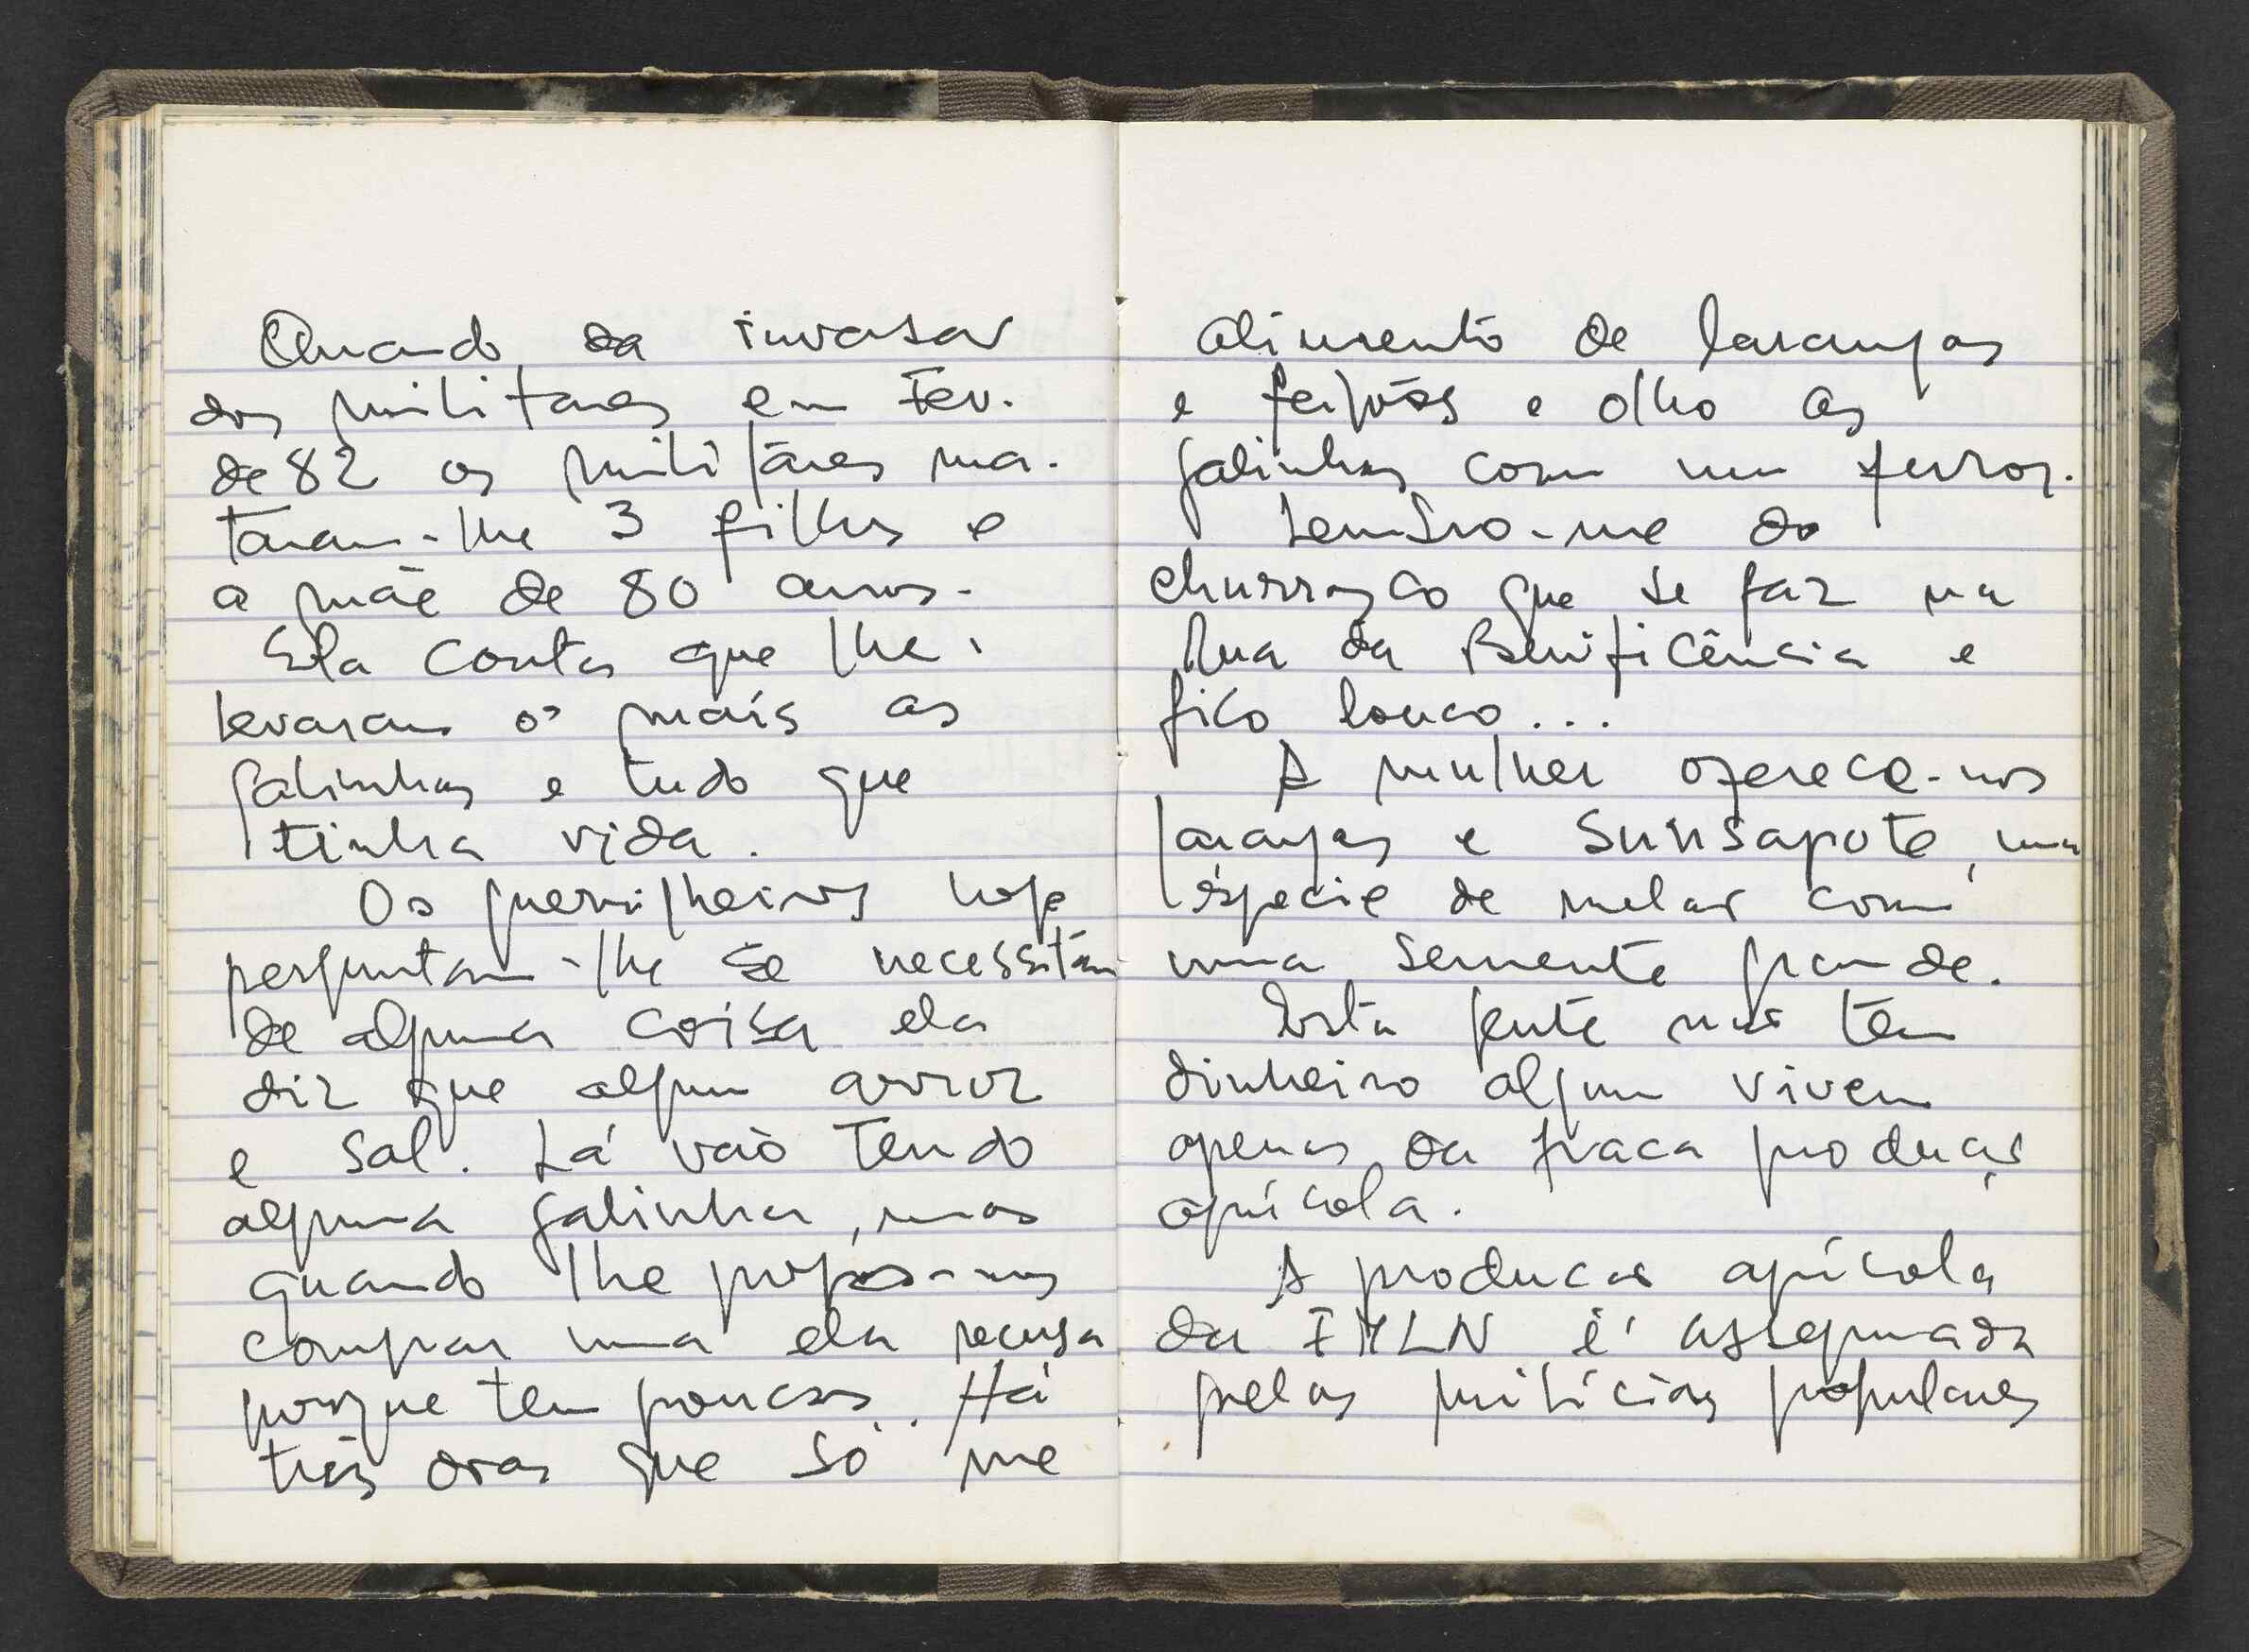 Quando da invasão
dos militares em Fev.
de 82 os militares ma-
taram-lhe 3 filhos e
a mãe de 80 anos.
Ela conta que lhe
levaram o mais as
galinhas e tudo que
tinha vida.
Os guerrilheiros hoje
perguntam-lhe se necessitam
de alguma coisa ela
diz que algum arroz
e sal. Lá vão tendo
alguma galinha, mas
quando lhe propômos
comprar uma ela recusa
porque tem poucas. Há
três dias que só me
alimento de laranjas
e feijões e olho as
galinhas com um furor.
Lembro-me do
churrasco que se faz na
Rua da Benificência e
fico louco...
A mulher oferece-nos
laranjas e Sunsapote, uma
espécie de melão com
uma semente grande.
Esta gente não tem
dinheiro algum vivem
apenas da fraca produção
agrícola.
A produção agrícola
da FMLN é assegurada
pelas milícias populares